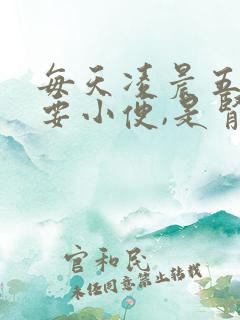 每天凌晨五
要小便,是肾
官和民
未经同意禁止转载